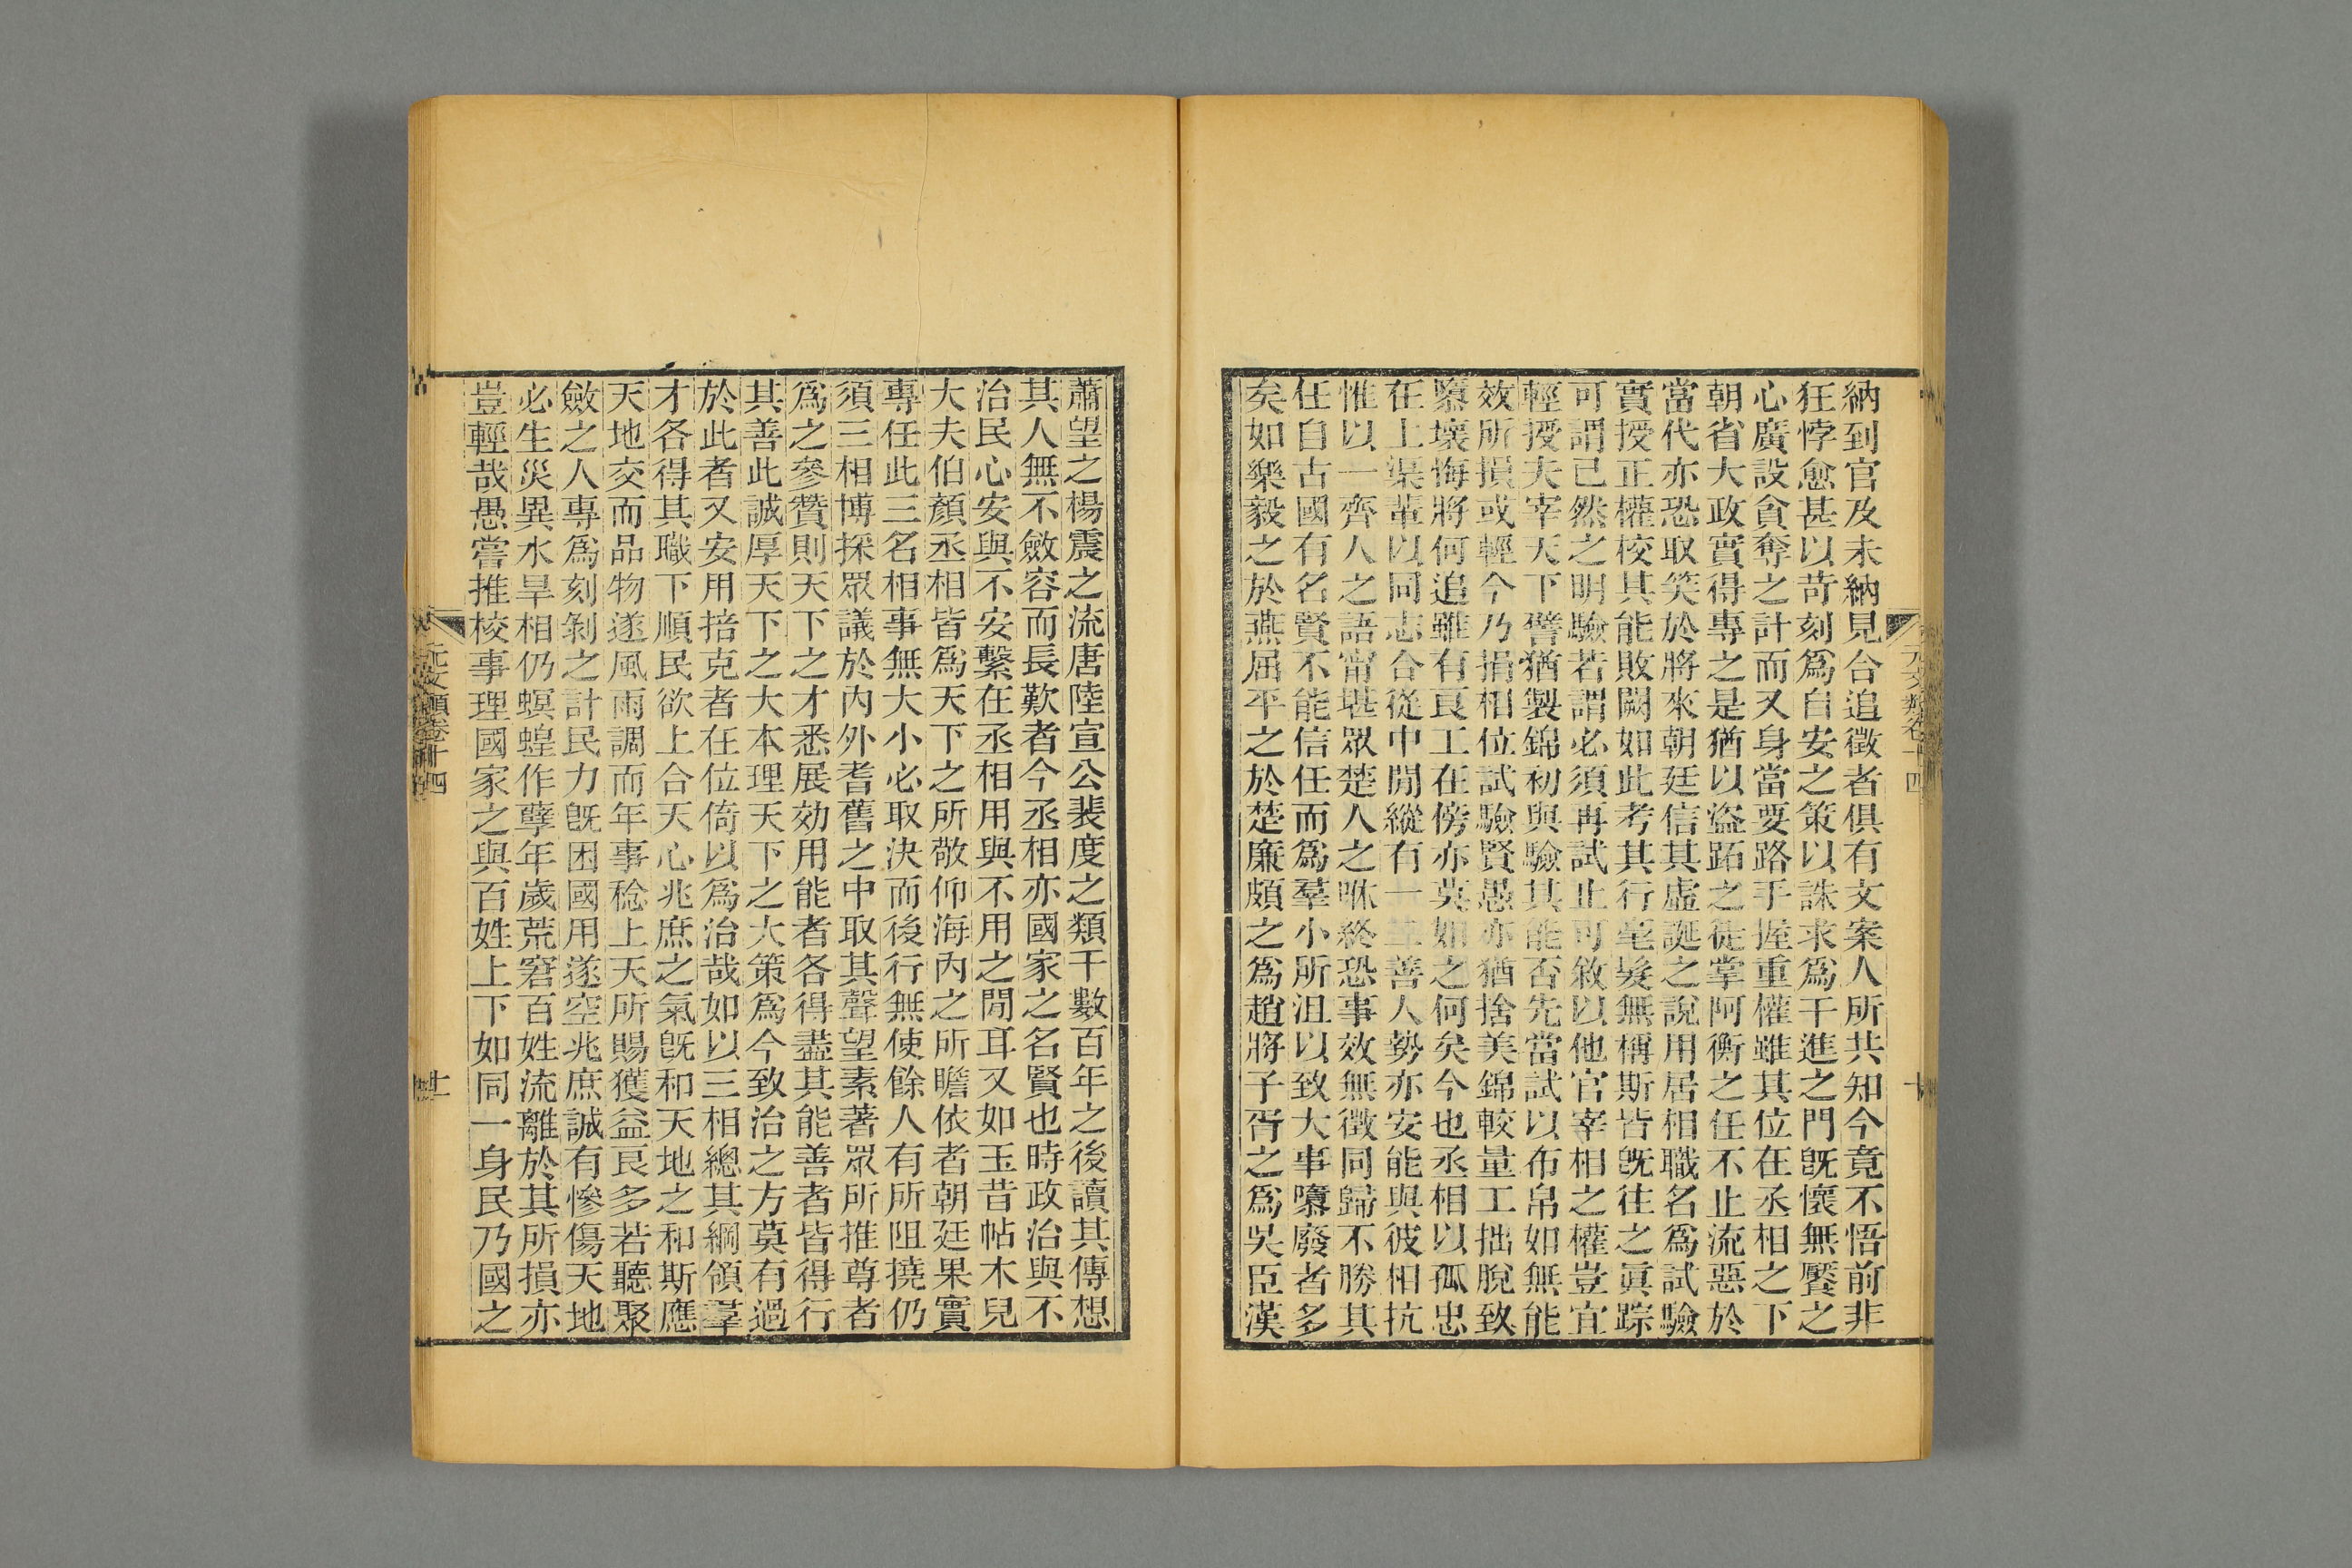 納到官及未納見合追徵者俱有文案人所共知今竟不悟前非
狂悖愈甚以苛刻爲自安之策以誅求爲干進之門旣懷無饜之
心廣設貪奪之計而又身當要路手握重權雖其位在丞相之下
朝省大政實得專之是猶以盜跖之徒掌阿衡之任不止流惡於
當代亦恐取笑於將來朝廷信其虛誕之說用居相職名爲試驗
實授正權校其能敗闕如此考其行毫髮無稱斯皆旣往之眞踪
可謂已然之明驗若謂必須再試止可敘以他官宰相之權豈宜
輕授夫宰天下譬猶製錦初與驗其能否先當試以布帛如無能
效所損或輕今乃捐相位試驗賢愚亦猶捨美錦較量工拙脫致
隳壞悔將何追雖有良工在傍亦莫如之何矣今也丞相以孤忠
在上渠輩以同志合從中閒縱有一二善人勢亦安能與彼相抗
惟以一齊人之語甯堪眾楚人之咻終恐事效無徵同歸不勝其
任自古國有名賢不能信任而爲羣小所沮以致大事隳廢者多
矣如樂毅之於燕屈平之於楚廉頗之爲趙將子胥之爲吳臣漢
元文類卷十四
十
蕭望之楊震之流唐陸宣公裴度之類千數百年之後讀其傳想
其人無不斂容而長歎者今丞相亦國家之名賢也時政治與不
治民心安與不安繫在丞相用與不用之閒耳又如玉昔帖木兒
大夫伯顏丞相皆爲天下之所敬仰海內之所瞻依者朝廷果實
專任此三名相事無大小必取決而後行無使餘人有所阻撓仍
須三相博採眾議於內外耆舊之中取其聲望素著眾所推尊者
爲之參贊則天下之才悉展効用能者各得盡其能善者皆得行
其善此誠厚天下之大本理天下之大策爲今致治之方莫有過
於此者又安用掊克者在位倚以爲治哉如以三相總其綱領羣
才各得其職下順民欲上合天心兆庶之氣旣和天地之和斯應
天地交而品物遂風雨調而年事稔上天所賜獲益良多若聽聚
斂之人專爲刻剝之計民力旣困國用遂空兆庶誠有慘傷天地
必生災異水旱相仍螟蝗作孽年歲荒窘百姓流離於其所損亦
豈輕哉愚嘗推校事理國家之與百姓上下如同一身民乃國之
元文類卷十四
十一